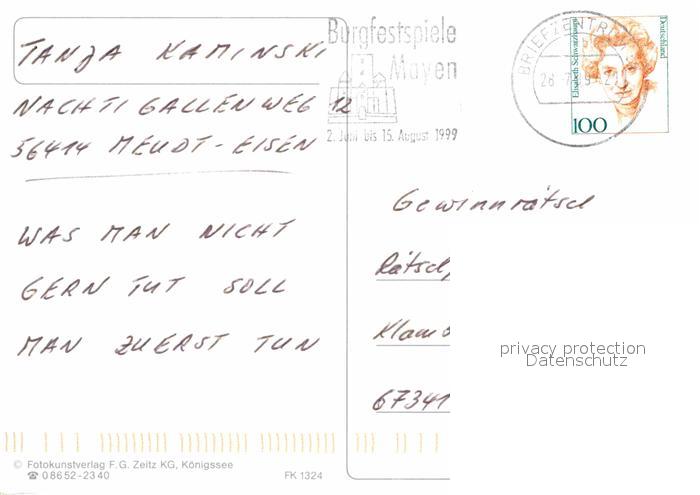 TANJA KAMINSKI
NACHTIGALLENWEG 12
56414 MEUDT-EISEN
WAS MAN NICHT
GERN TUT SOLL
MAN ZUERST TUN
Burgfestspiele
Mayen
2. Juni bis 15. August 1999
BRIEFZENTRUM
Elisabeth Schwarzhaupt
Deutschland
100
Gewinnrätsel
Rätsel,
Klamo
67341
privacy protection
Datenschutz
© Fotokunstverlag F. G. Zeitz KG, Königssee
☎ 0 86 52 – 23 40
FK 1324